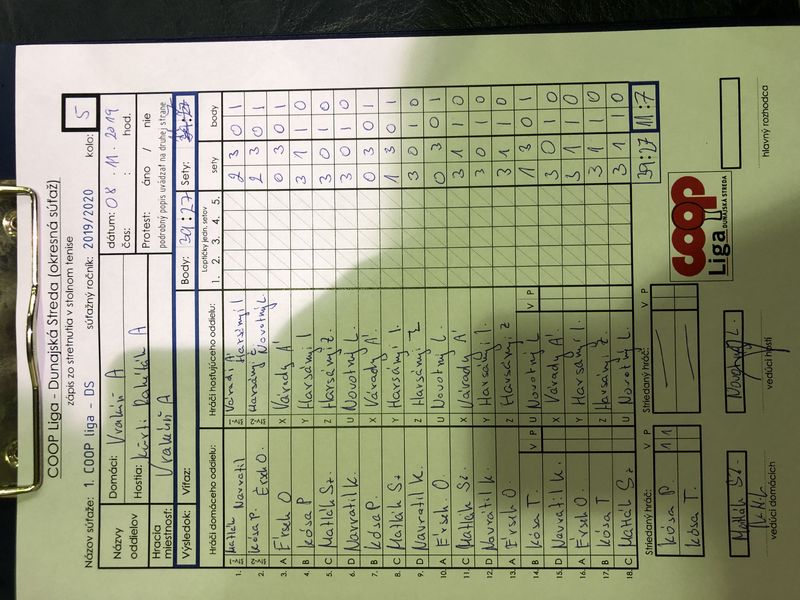 COOP Liga - Dunajská Streda (okresná súťaž)
zápis zo stretnutia v stolnom tenise
Názov súťaže: 1. COOP liga - DS súťažný ročník: 2019/2020 kolo: 5
Názvy oddielov Domáci: Vrakúň A dátum: 08.11.2019
Hostia: Kürti A čas: : hod.
Hracia miestnosť: Vrakúň A Protest: áno / nie
podrobný popis uvádzať na druhej strane
Výsledok: Víťaz: Body: 39:27 Sety:
Hráči domáceho oddielu: Hráči hosťujúceho oddielu: Loptičky jedn. setov sety body
1. 2. 3. 4. 5.
1. Matlák Navratil Váradi Á Harsányi I 2 3 0 1
2. Kósa P. Érsek O. Harsány Z Novotný L 2 3 0 1
3. A Érsek O X Várady Á 0 3 0 1
4. B Kósa P Y Harsányi I. 3 1 1 0
5. C Matlák Sz. Z Harsány Z. 3 0 1 0
6. D Navratil K. U Novotný L 3 0 1 0
7. B Kósa P. X Várady Á 0 3 0 1
8. C Matlák Sz Y Harsányi I. 1 3 0 1
9. D Navratil K. Z Harsányi Z 3 0 1 0
10. A Érsek O. U Novotný L. 0 3 0 1
11. C Matlák Sz. X Várady Á 3 1 1 0
12. D Navratil K. Y Harsányi I. 3 0 1 0
13. A Érsek O. Z Harsányi Z 3 1 1 0
14. B Kósa T. V P U Novotný L V P 1 3 0 1
15. D Navratil K. X Várady Á 3 0 1 0
16. A Érsek O. Y Harsányi I. 3 1 1 0
17. B Kósa T Z Harsány Z. 3 1 1 0
18. C Matlák Sz U Novotný L. 3 1 1 0
39:27 11:7
Striedaný hráč: V P Striedaný hráč: V P
Kósa P 11
Kósa T.
COOP
Liga DUNAJSKÁ STREDA
Matlák Sz. Novotný L.
vedúci domácich vedúci hostí hlavný rozhodca